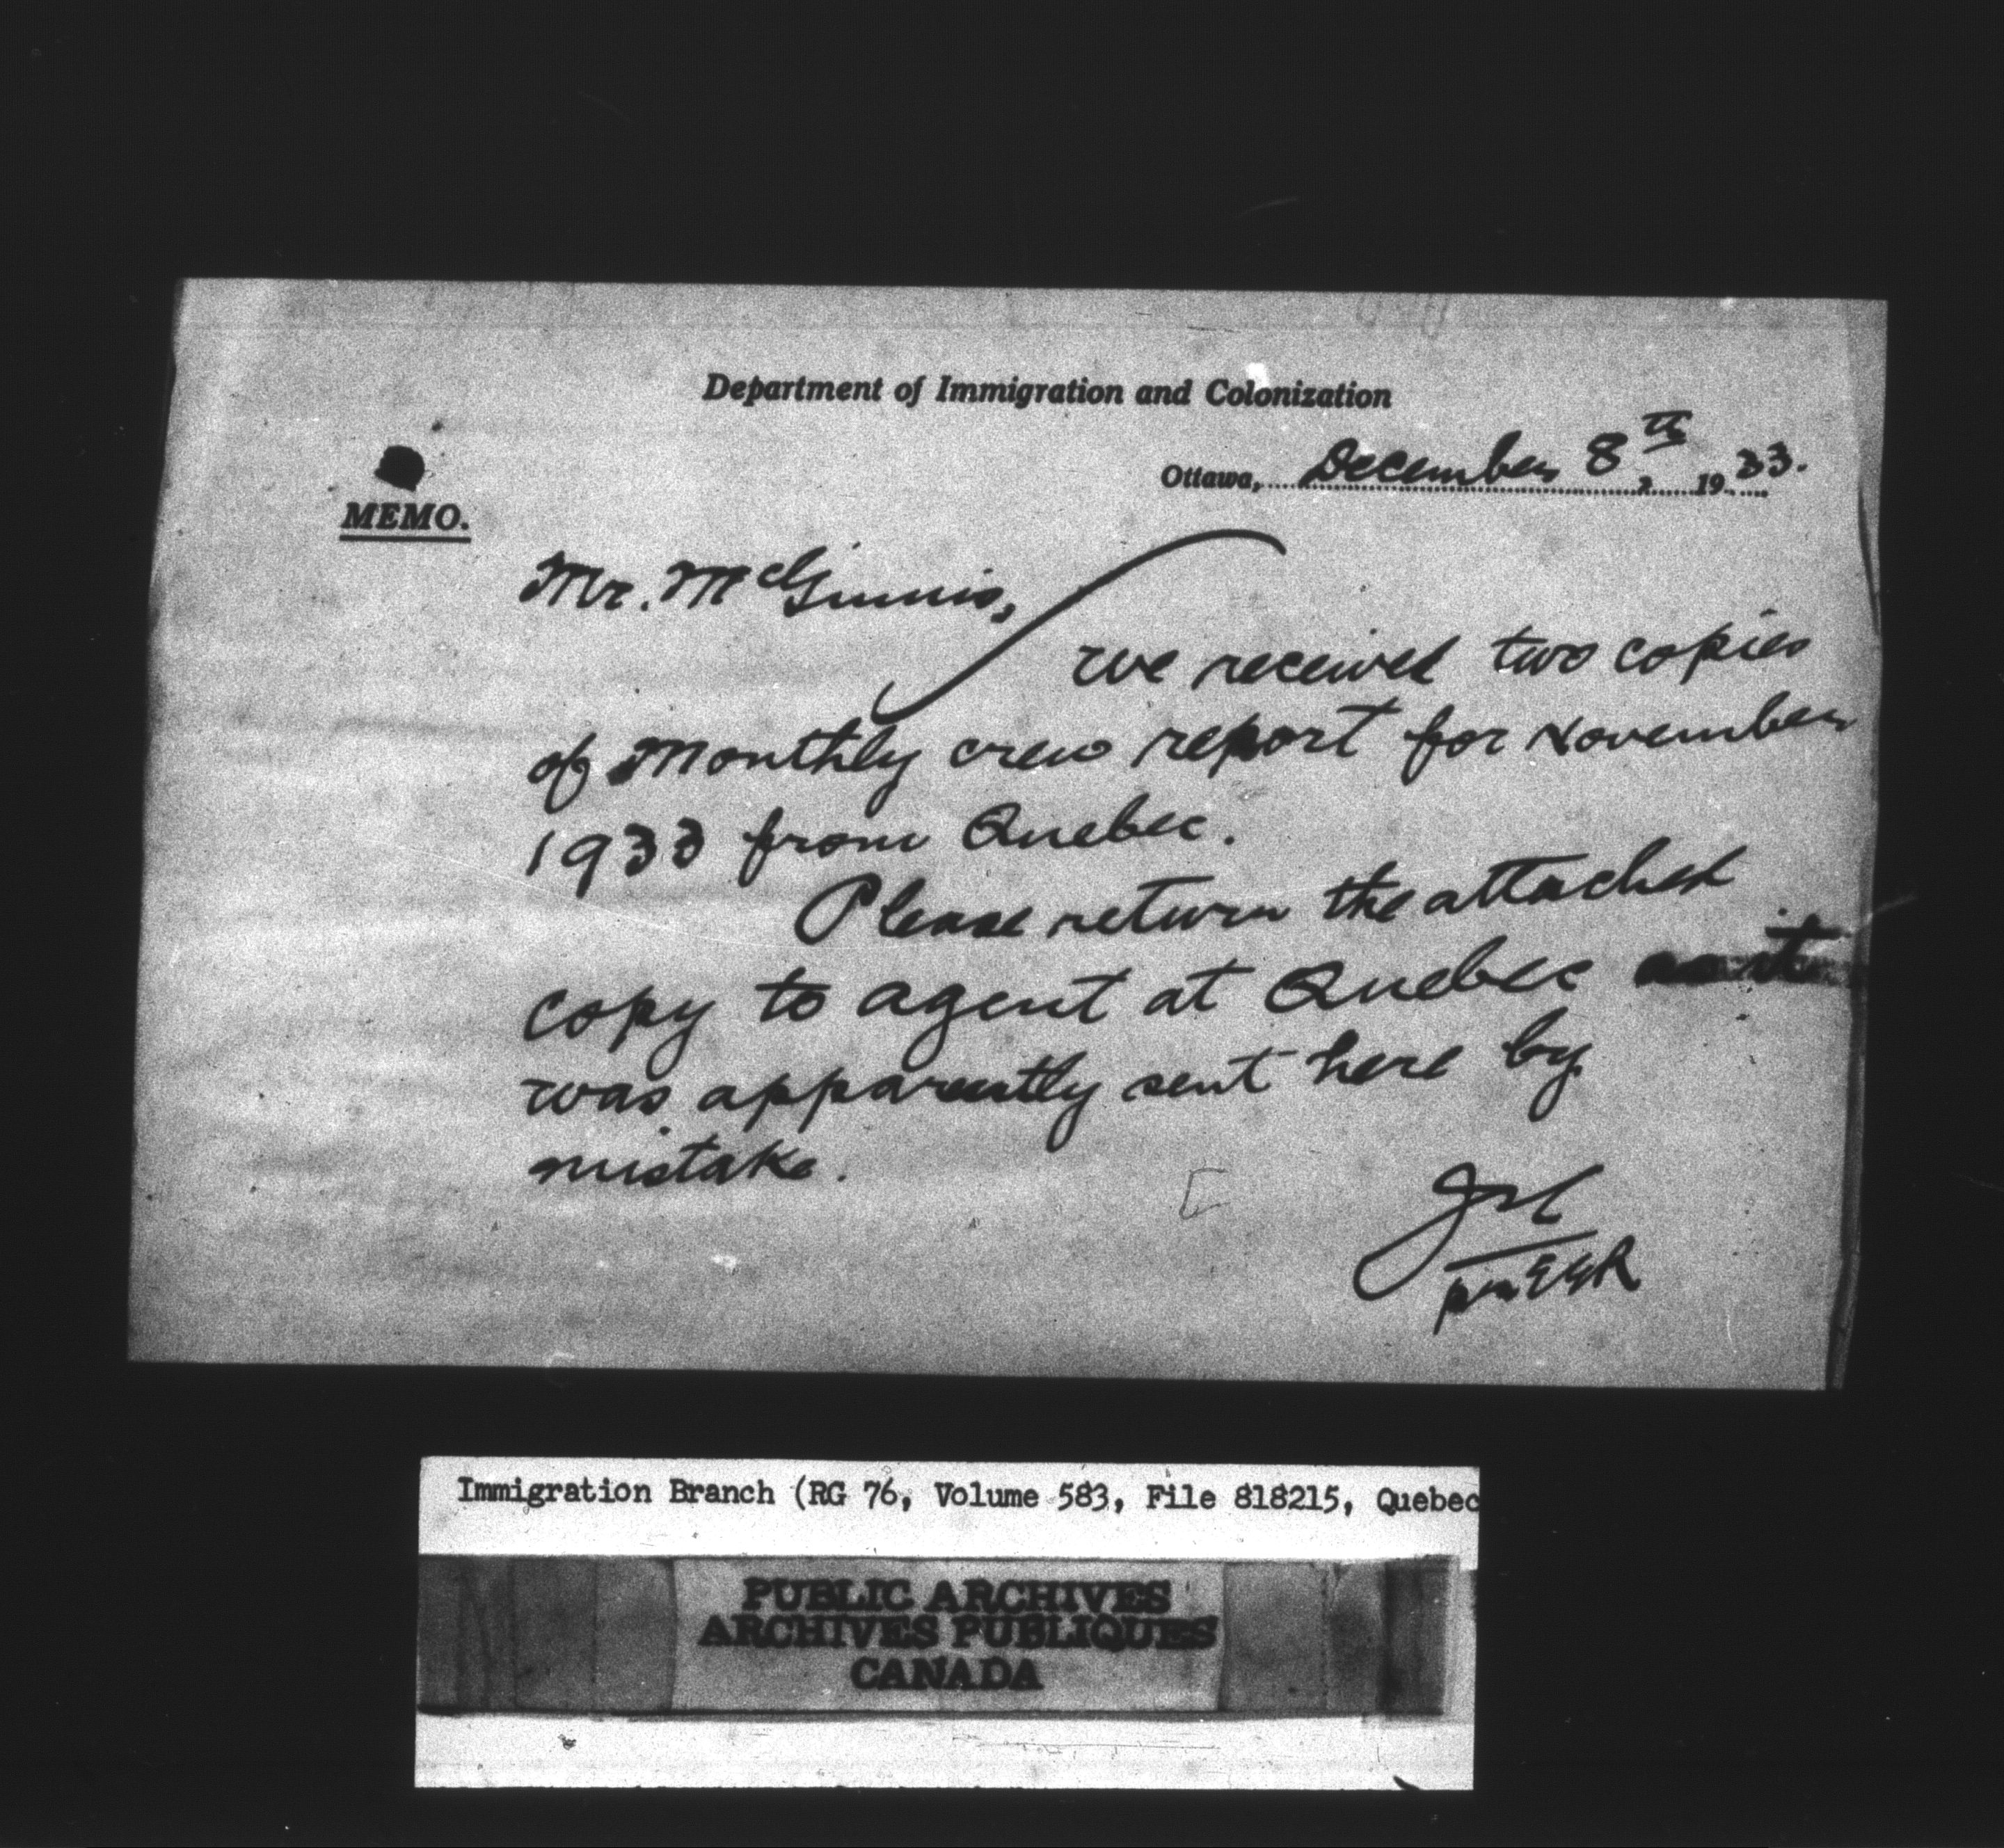 Department of Immigration and Colonization
Ottawa, December 8th, 1933.
MEMO.
Mr. McGinnis,
we received two copies
of Monthly crew report for November
1933 from Quebec.
Please return the attached
copy to agent at Quebec as it
was apparently sent here by
mistake.
Immigration Branch (RG 76, Volume 583, File 818215, Quebec
PUBLIC ARCHIVES
ARCHIVES PUBLIQUES
CANADA